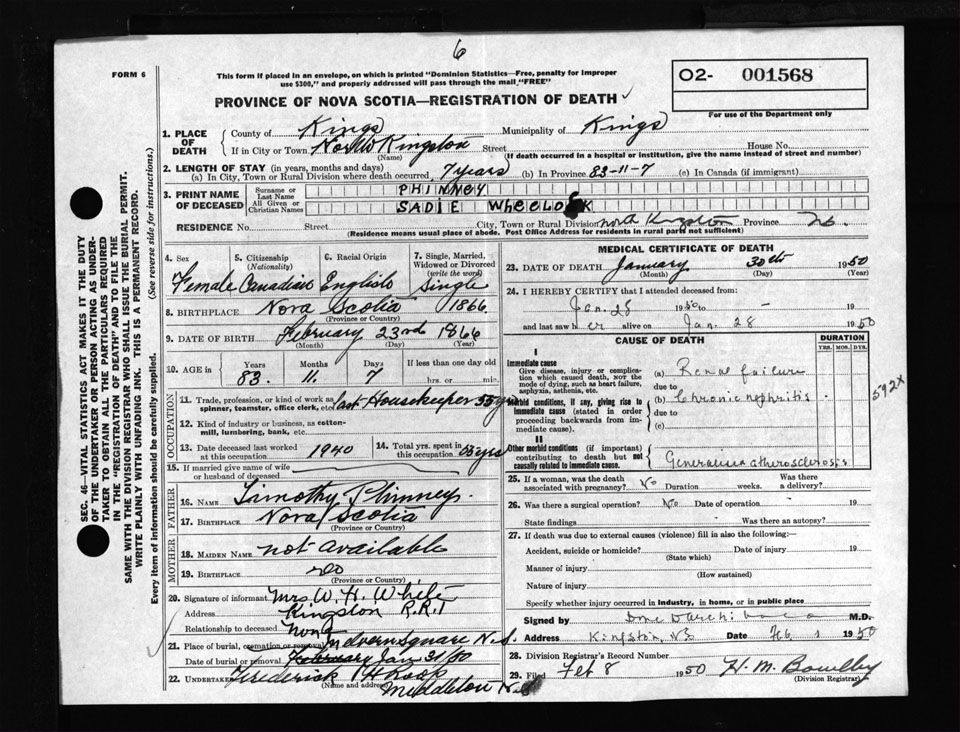 6
FORM 6
This form if placed in an envelope, on which is printed "Dominion Statistics—Free, penalty for improper
use $300," and properly addressed will pass through the mail "FREE"
O2- 001568
For use of the Department only
PROVINCE OF NOVA SCOTIA—REGISTRATION OF DEATH
1. PLACE OF DEATH { County of Kings Municipality of Kings
If in City or Town North Kingston Street House No.
(Name) (If death occurred in a hospital or institution, give the name instead of street and number)
2. LENGTH OF STAY (in years, months and days)
(a) In City, Town or Rural Division where death occurred 7 years (b) In Province 83-11-7 (c) In Canada (if immigrant)
3. PRINT NAME OF DECEASED { Surname or Last Name PHINNEY
All Given or Christian Names SADIE WHEELOCK
RESIDENCE No. Street City, Town or Rural Division North Kingston Province
(Residence means usual place of abode. Post Office Address for residents in rural parts not sufficient)
4. Sex Female
5. Citizenship (Nationality) Canadian
6. Racial Origin English
7. Single, Married, Widowed or Divorced (write the word) Single
8. BIRTHPLACE Nova Scotia 1866
(Province or Country)
9. DATE OF BIRTH February 23rd 1866
(Month) (Day) (Year)
10. AGE in { Years 83 Months 11 Days 7 If less than one day old
hrs. or min.
OCCUPATION
11. Trade, profession, or kind of work as spinner, teamster, office clerk, etc. last Housekeeper 55 yrs
12. Kind of industry or business, as cotton-mill, lumbering, bank, etc.
13. Date deceased last worked at this occupation 1940
14. Total yrs. spent in this occupation 55 yrs
15. If married give name of wife or husband of deceased
FATHER
16. NAME Timothy Phinney
17. BIRTHPLACE Nova Scotia
(Province or Country)
MOTHER
18. MAIDEN NAME not available
19. BIRTHPLACE do
(Province or Country)
20. Signature of informant Mrs W. H. White
Address Kingston R.R.1
Relationship to deceased none
21. Place of burial, cremation or removal Melvern Square N.S.
Date of burial or removal February Jan 31/50
22. Undertaker Frederick H Roop
(Name and address) Middleton N.S.
MEDICAL CERTIFICATE OF DEATH
23. DATE OF DEATH January 30th 1950
(Month) (Day) (Year)
24. I HEREBY CERTIFY that I attended deceased from:
Jan. 28 1950 to - 19
and last saw her alive on Jan. 28 1950
CAUSE OF DEATH
DURATION
YRS. MOS. DYS.
I
Immediate cause
Give disease, injury or complication which caused death, not the mode of dying, such as heart failure, asphyxia, asthenia, etc.
(a) Renal failure
due to
Morbid conditions, if any, giving rise to immediate cause (stated in order proceeding backwards from immediate cause).
(b) Chronic nephritis
due to
(c)
592X
II
Other morbid conditions (if important) contributing to death but not causally related to immediate cause.
Generalised atherosclerosis
25. If a woman, was the death associated with pregnancy? No Duration weeks. Was there a delivery?
26. Was there a surgical operation? No Date of operation 19
State findings Was there an autopsy?
27. If death was due to external causes (violence) fill in also the following:—
Accident, suicide or homicide? Date of injury 19
(State which)
Manner of injury
(How sustained)
Nature of injury
Specify whether injury occurred in Industry, in home, or in public place
Signed by M.D.
Address Kingston, NS Date Feb 1 1950
28. Division Registrar's Record Number
29. Filed Feb 8 1950 H. M. Bowlby
(Division Registrar)
SEC. 46—VITAL STATISTICS ACT MAKES IT THE DUTY
OF THE UNDERTAKER OR PERSON ACTING AS UNDER-
TAKER TO OBTAIN ALL THE PARTICULARS REQUIRED
IN THE "REGISTRATION OF DEATH" AND TO FILE THE
SAME WITH THE DIVISION REGISTRAR WHO SHALL ISSUE THE BURIAL PERMIT.
WRITE PLAINLY WITH UNFADING INK. THIS IS A PERMANENT RECORD.
Every item of information should be carefully supplied. (See reverse side for instructions.)